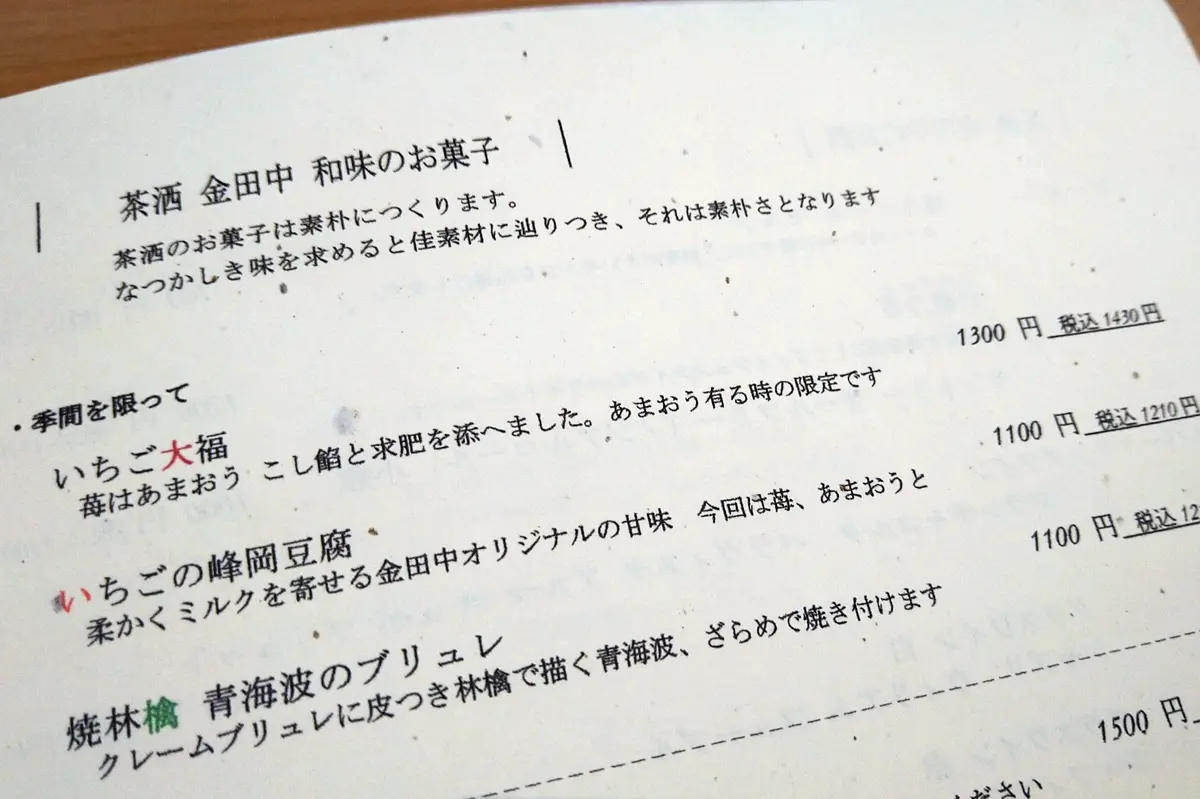 茶洒 金田中 和味のお菓子
茶洒のお菓子は素朴につくります。
なつかしき味を求めると佳素材に辿りつき、それは素朴さとなります
・季間を限って
いちご大福 1300 円 税込 1430 円
苺はあまおう こし餡と求肥を添へました。あまおう有る時の限定です
いちごの峰岡豆腐 1100 円 税込 1210 円
柔かくミルクを寄せる金田中オリジナルの甘味 今回は苺、あまおうと
焼林檎 青海波のブリュレ 1100 円 税込 12
クレームブリュレに皮つき林檎で描く青海波、ざらめで焼き付けます
1500 円
ください